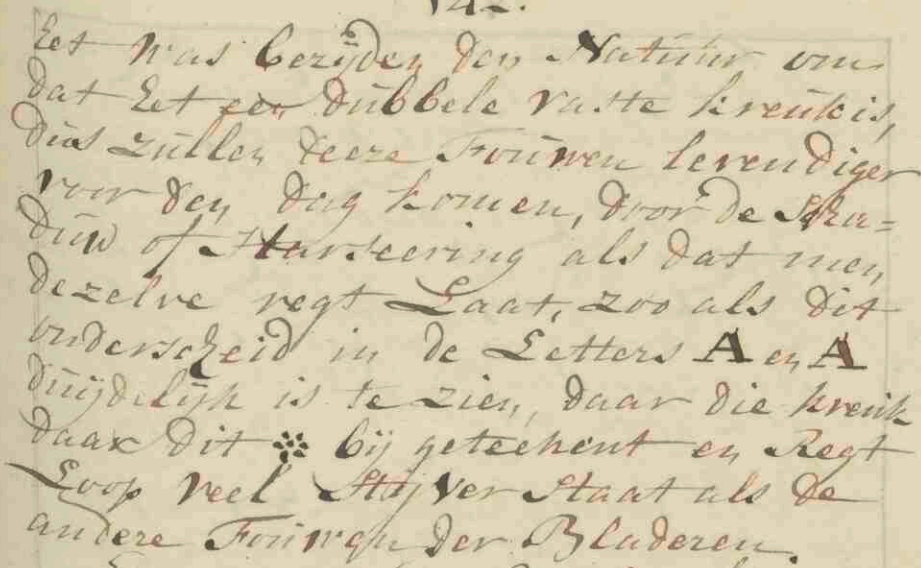 het was bezijden den Natuur om
dat het een dubbele vaste kreuk is,
dus zullen deeze Fouwen levendiger
voor den dag komen, door de Scha=
duw of Harseering als dat men
dezelve regt Laat, zoo als dit
onderscheid in de Letters A en A
duijdelijk is te zien, daar die kreuk
daar dit bij geteekent en Regt
Loop veel Stijver Staat als de
andere Fouwen der Bladeren.